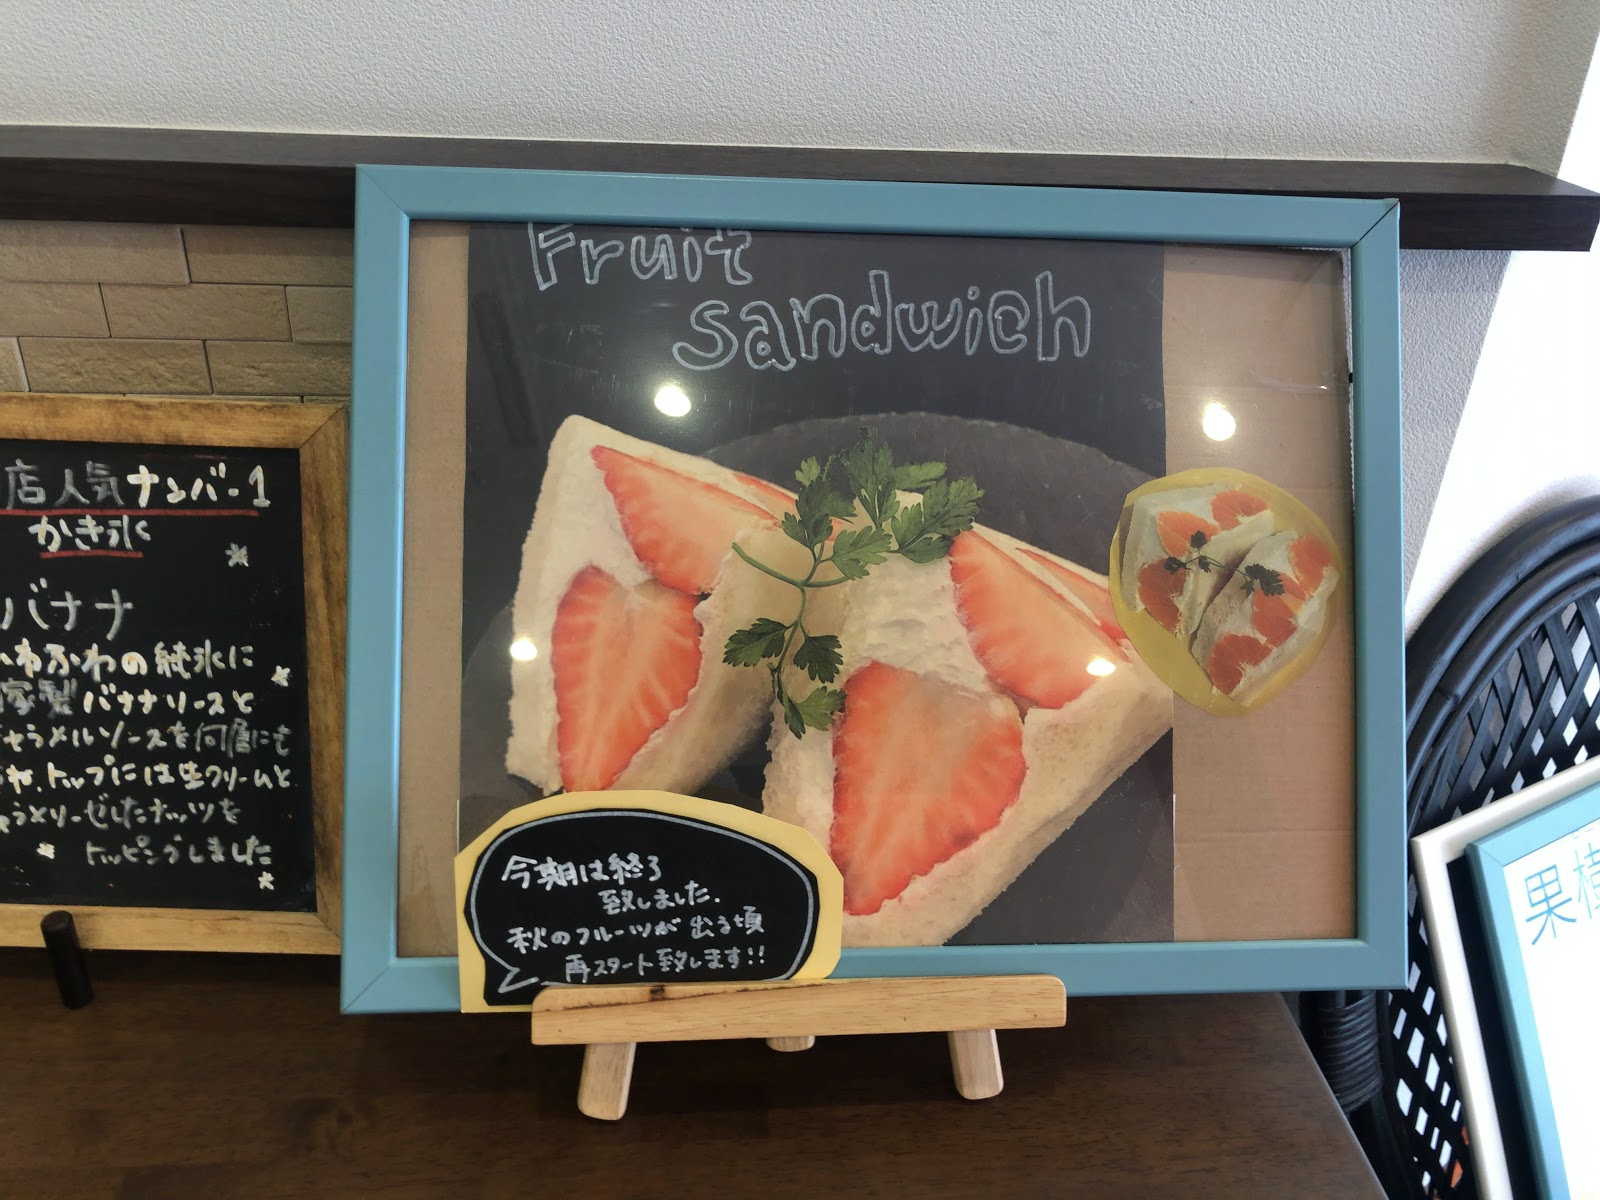 店人気ナンバー1
かき氷
バナナ
わふわの純氷に
家製バナナソースと
ャラメルソースを何層にも
ね、トップには生クリームと
ャラメリーゼしたナッツを
トッピングしました
Fruit
sandwich
今期は終了
致しました.
秋のフルーツが出る頃
再スタート致します!!
果樹